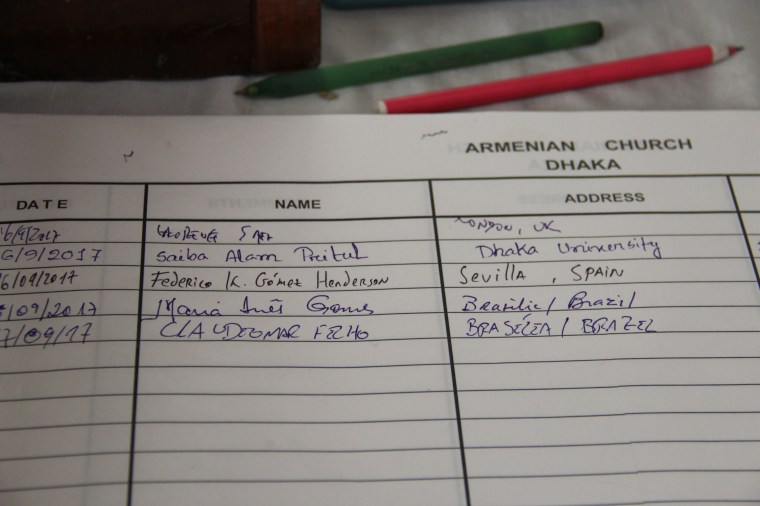 ARMENIAN CHURCH
DHAKA
DATE NAME ADDRESS
6/9/2017 LONDON, UK
6/9/2017 Saiba Alam Dhaka University
6/09/2017 Federico K. Gómez Henderson Sevilla, SPAIN
/09/2017 Maria Inês Gomes Brasília/ Brazil
7/09/17 CLAUDEOMAR FELHO BRASÉLEA/ BRAZEL